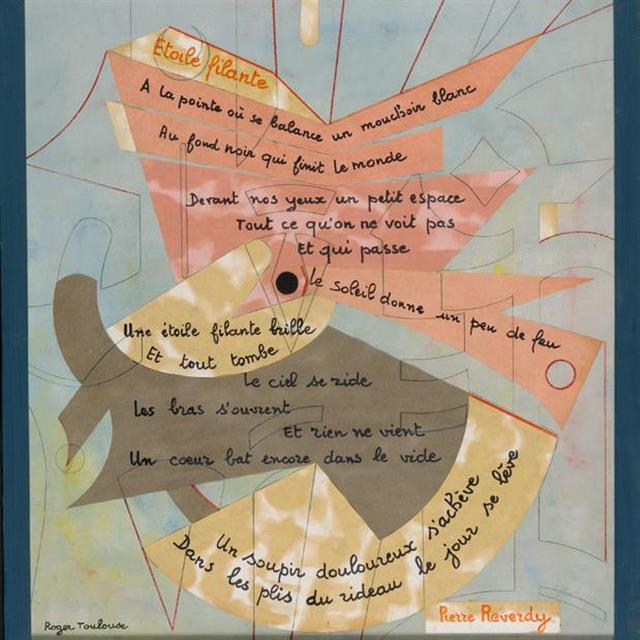 Etoile filante
A la pointe où se balance un mouchoir blanc
Au fond noir qui finit le monde
Devant nos yeux un petit espace
Tout ce qu'on ne voit pas
Et qui passe
Le soleil donne un peu de feu
Une étoile filante brille
Et tout tombe
Le ciel se ride
Les bras s'ouvrent
Et rien ne vient
Un coeur bat encore dans le vide
Un soupir douloureux s'achève
Dans les plis du rideau le jour se lève
Pierre Reverdy
Roger Toulouse